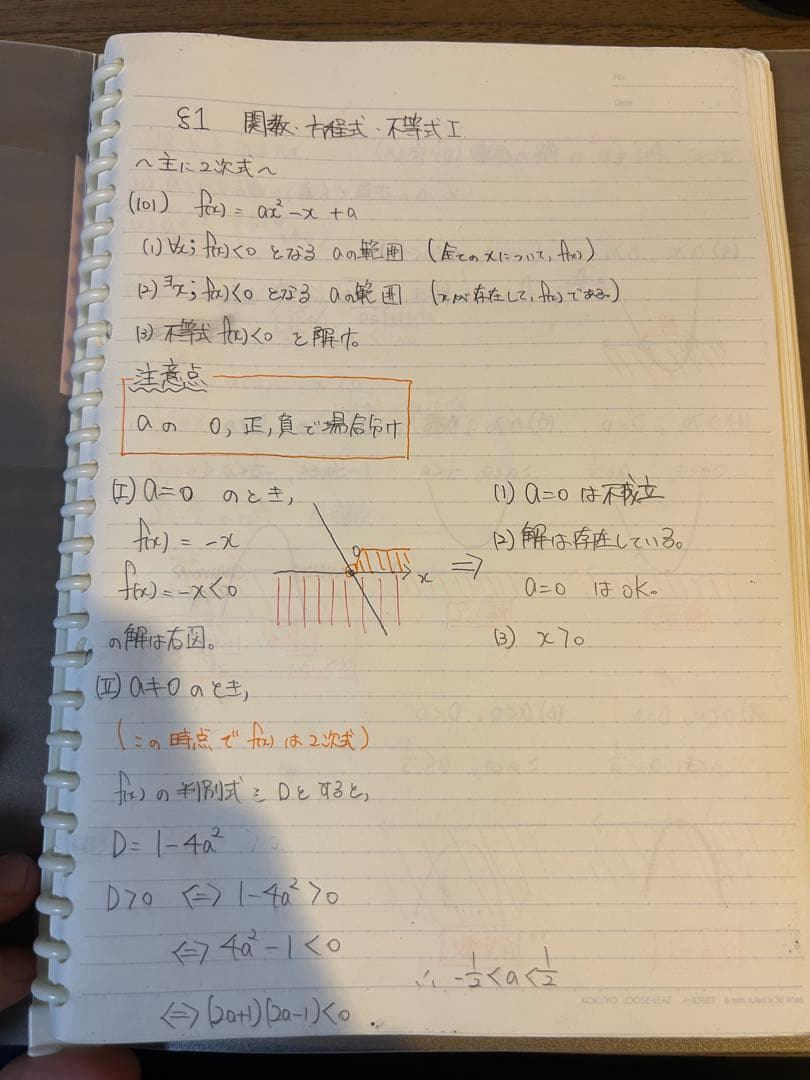 No.
Date
§1 関数・方程式・不等式 I
～主に2次式～
(101) f(x) = ax² - x + a
(1) ∀x; f(x)<0 となる aの範囲 (全てのxについて, f(x))
(2) ∃x; f(x)<0 となる aの範囲 (xが存在して, f(x)である。)
(3) 不等式 f(x)<0 を解け。
注意点
aの 0, 正, 負で場合分け
(I) a=0 のとき,
f(x) = -x
f(x) = -x<0
の解は右図。
0
x
⇒
(1) a=0 は不成立
(2) 解は存在している。
a=0 はok。
(3) x>0
(II) a≠0 のとき,
(この時点で f(x)は2次式)
f(x)の判別式をDとすると,
D = 1-4a²
D>0 ⇔ 1-4a²>0
⇔ 4a²-1<0
⇔ (2a+1)(2a-1)<0.
∴ -1/2<a<1/2
KOKUYO LOOSE-LEAF